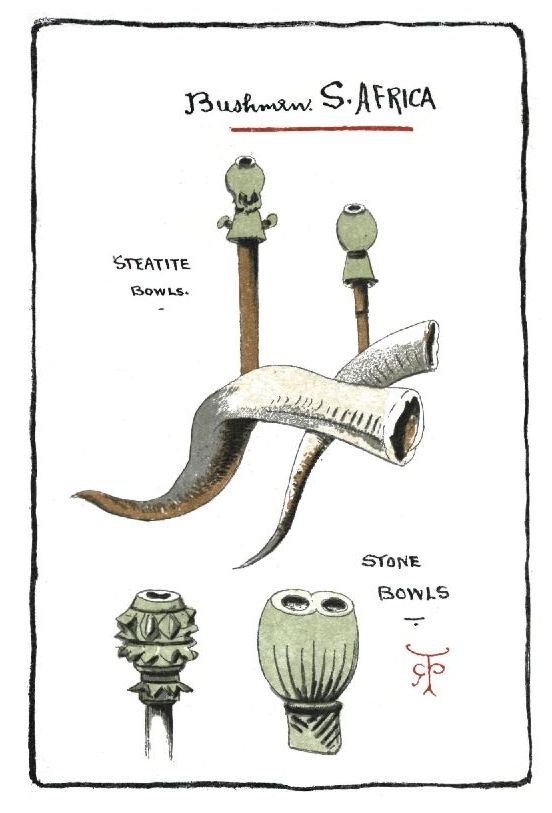 Bushmen. S. AFRICA
STEATITE
BOWLS.
STONE
BOWLS